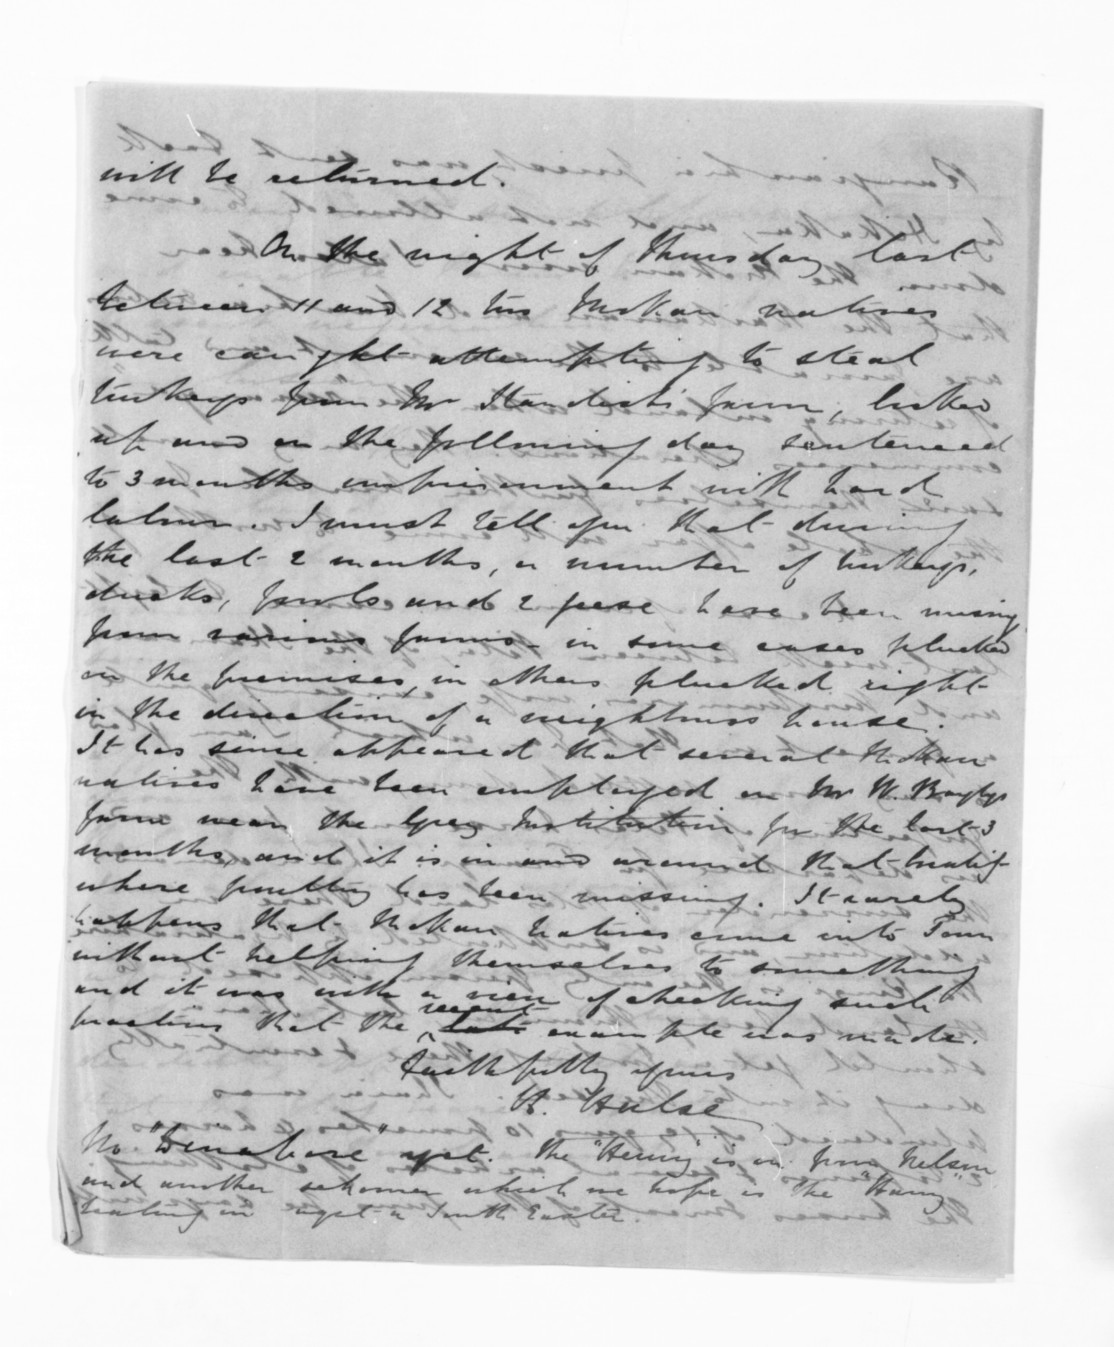 will be returned.
On the night of Thursday last
between 11 and 12 two Mokau natives
were caught attempting to steal
turkeys from Mr Standish's farm, locked
up and on the following day sentenced
to 3 months imprisonment with hard
labour. I must tell you that during
the last 2 months, a number of turkeys,
ducks, fowls and 2 geese have been missing
from various farms - in some cases plucked
on the premises, in others plucked right
in the direction of a neighbours house.
It has since appeared that several Mokau
natives have been employed on Mr W. Baylys
farm near the Grey Institution for the last 3
months, and it is in and around that locality
where poultry has been missing. It rarely
happens that Mokau natives come into Town
without helping themselves to something
and it was with a view of checking such
practices that the recent example was made.
Faithfully yours
H. Hulse
No yet. The "Henry" is in from Nelson
and another schooner which we hope is the
beating up agst a South Easter.